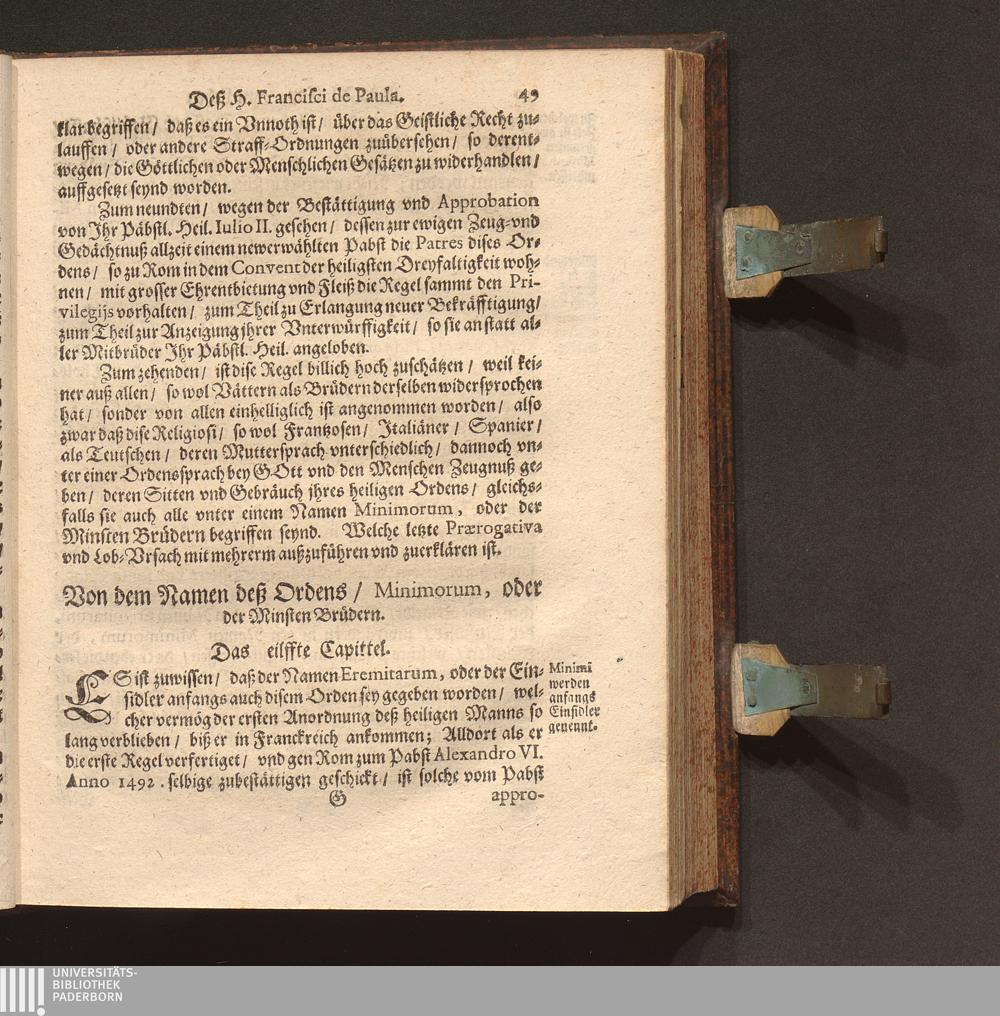 Deß H. Francisci de Paula. 49
klar begriffen / daß es ein Vnnoth ist / über das Geistliche Recht zu-
lauffen / oder andere Straff-Ordnungen zuübersehen / so derent-
wegen / die Göttlichen oder Menschlichen Gesätzen zu widerhandlen /
auffgesetzt seynd worden.
Zum neundten / wegen der Bestättigung vnd Approbation
von Ihr Päbstl. Heil. Iulio II. gesehen / dessen zur ewigen Zeug-vnd
Gedächtnuß allzeit einem newerwählten Pabst die Patres dises Or-
dens / so zu Rom in dem Convent der heiligsten Dreyfaltigkeit woh-
nen / mit grosser Ehrentbietung vnd Fleiß die Regel sammt den Pri-
vilegijs vorhalten / zum Theil zu Erlangung neuer Bekräfftigung /
zum Theil zur Anzeigung jhrer Vnterwürffigkeit / so sie an statt al-
ler Mitbrüder Ihr Päbstl. Heil. angeloben.
Zum zehenden / ist dise Regel billich hoch zuschätzen / weil kei-
ner auß allen / so wol Vättern als Brüdern derselben widersprochen
hat / sonder von allen einhelliglich ist angenommen worden / also
zwar daß dise Religiosi / so wol Frantzosen / Italiäner / Spanier /
als Teutschen / deren Muttersprach vnterschiedlich / dannoch vn-
ter einer Ordenssprach bey GOtt vnd den Menschen Zeugnuß ge-
ben / deren Sitten vnd Gebräuch jhres heiligen Ordens / gleichs-
falls sie auch alle vnter einem Namen Minimorum, oder der
Minsten Brüdern begriffen seynd. Welche letzte Prærogativa
vnd Lob-Vrsach mit mehrerm außzuführen vnd zuerklären ist.
Von dem Namen deß Ordens / Minimorum, oder
der Minsten Brüdern.
Das eilffte Capittel.
ES ist zuwissen / daß der Namen Eremitarum, oder der Ein-
sidler anfangs auch disem Orden sey gegeben worden / wel-
cher vermög der ersten Anordnung deß heiligen Manns so
lang verblieben / biß er in Franckreich ankommen; Alldort als er
die erste Regel verfertiget / vnd gen Rom zum Pabst Alexandro VI.
Anno 1492. selbige zubestättigen geschickt / ist solche vom Pabst
Minimi
werden
anfangs
Einsidler
genennt.
G appro-
UNIVERSITÄTS-
BIBLIOTHEK
PADERBORN